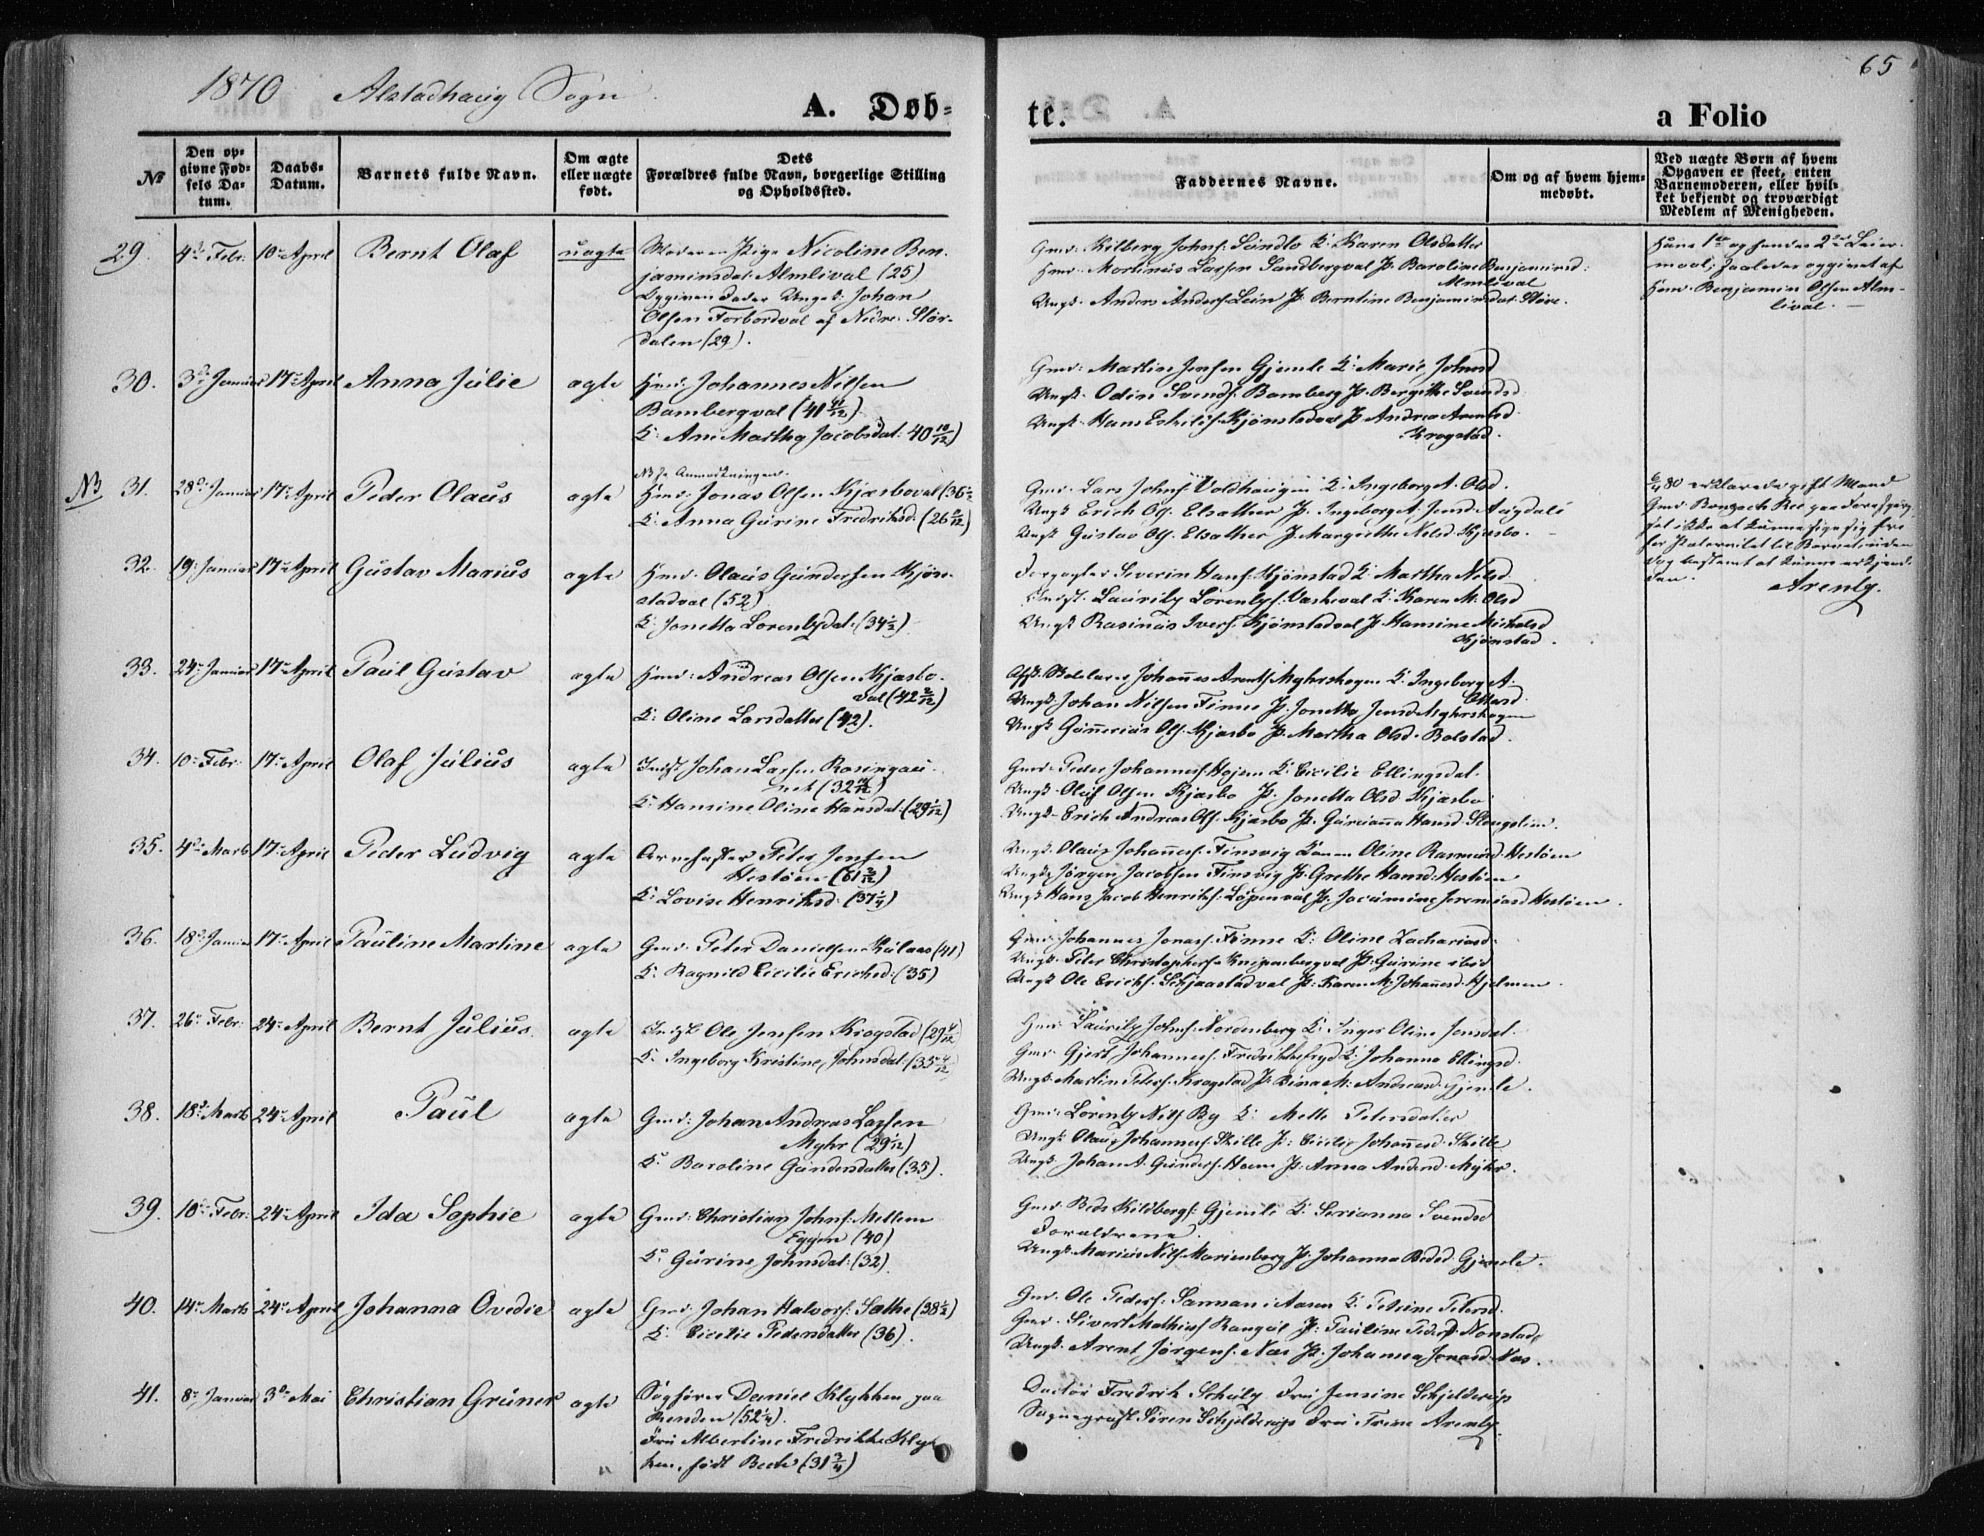 1870 Alstadhaug Sogn.
65
A. Døb-
te.
a Folio
No
Den op-
givne Fød-
sels Da-
tum.
Daabs-
Datum.
Barnets fulde Navn.
Om ægte
eller uægte
født.
Dets
Forældres fulde Navn, borgerlige Stilling
og Opholdssted.
Faddernes Navne.
Om og af hvem hjem-
medøbt.
Ved uægte Børn af hvem
Opgaven er skeet, enten
Barnemoderen, eller hvil-
ket bekjendt og troværdigt
Medlem af Menigheden.
29. 4de Febr. 10de April Bernt Olaf uægte
Moderen Pige Nicoline Ben-
jaminsdat: Almlival (25)
Opgiven Fader Ungk: Johan
Olsen Forbordval af Nedre Stør-
dalen (29).
Gmd: Kilberg Johns: Leindlo K: Karen Olsdatter
Hmd: Martinus Larsen Sandbergval P: Baroline Benjaminsd:
Almlival
Ungk: Anders Anders: Lein P: Berntine Benjaminsdat:
Hans 1ste og hendes 2det Leier-
maal; saaledes opgivet af
Hmd: Benjamin Olsen Alm-
lival.
30. 3de Januar 17de April Anna Julie ægte
Hmd: Johannes Nilsen
Bambergval (41 11/12)
K: Ane Martha Jacobsdat: 40 10/12)
Gmd: Martin Jensen Gjemle K: Marie Johnsd
Ungk: Odin Svends: Bamberg P: Bergitte Svendsd
Ungk: Hans Eskils: Kjønstadval P: Andrea Arentsd
Krogstad.
NB 31. 28de Januar 17de April Peder Olaus ægte
NB Se Anmærkningen.
Hmd: Jonas Olsen Kjæsboval (36½
K: Anna Gurine Fredriksd: (26 9/12)
Gmd: Lars Johns: Voldhaugen K: Ingeborg A. Olsd.
Ungk: Erich Ols: Elsather P: Ingeborg A. Jensd Aagdali
Ungk Gustav Ols: Elsather P: Margrethe Nelsd. Kjæsbo.
6/4 80 erklærede gift Mand
Gmd. Ree paa Forespørg-
sel ikke at kunne sige sig fri
for Paternitet til Barnet uden
dog bestemt at kunne erkjende
den.
Arentz.
32. 19de Januar 17de April Gustav Marius ægte
Hmd. Olaus Gundersen Kjøn-
stadval (52)
K: Jonetta Lorentzdat: (34½)
Forpagter Severin Hans: Kjønstad K: Martha Nelsd
Indst. Lauritz Lorentzs: Væskeval K: Karen M. Olsd
Ungk Rasinus Ivers: Kjønstadval P: Hansine Mikalsd
Kjønstad.
33. 24de Januar 17de April Paul Gustav ægte
Hmd: Andreas Olsen Kjæsbo-
val (42 2/12)
K: Oline Larsdatter (42).
Johannes Arents: Myhrskogen K: Ingeborg A.
Ottersd.
Ungk Johan Nilsen Finne P: Jonetta Jensd Myhrskogen
Ungk Gunnerius Ols: Kjæsbo P: Martha Olsd. Bolstad.
34. 10de Febr: 17de April Olaf Julius ægte
Indst Johan Larsen Rosingau-
net (32 10/12)
K: Hansine Oline Hansdat: (29 1/12)
Gmd: Peder Johannes: Hojem K: Cicilie Ellingsdat.
Ungk: Oluf Olsen Kjæsbo P: Jonetta Olsd Kjæsbo
Ungk: Erich Andreas Ols: Kjæsbo P: Gurianna Hansd.
35. 4de Marts 17de April Peder Ludvig ægte
Arnefæster Peter Jensen
Hestøen (61 3/12)
K: Lovise Henriksd: (37¼)
Ungk. Olaus Johannes: Finsvig Konen Oline Rasmusd. Hestøen
Ungk. Jørgen Jacobsen Finsvig P: Grethe Hansd: Hestøen
Ungk: Hans Jacob Henriks: Løpenval P: Jacomine Jeremiasd Hestøen.
36. 18de Januar 17de April Pauline Martine ægte
Gmd: Peter Danielsen Kulaas (41)
K: Ragnild Cicilie Erichsd: (35)
Gmd: Johannes Jonas: Finne K: Oline Zachariasd.
Ungk: Peter Christophersen Knipenbergval P: Gurine ibid
Ungk Ole Erichs: Skjaastadval P: Karen M. Johannesd. Hjelmen.
37. 26de Febr: 24de April Bernt Julius ægte
Indst Ole Jensen Krogstad (29 4/12
K: Ingeborg Kristine Johnsdat: (35 4/12
Hmd: Lauritz Johns: Nordenberg K: Inger Oline Jensdat.
Gmd. Gjert Johannes: Fredrikkesfryd K: Johanna Ellingsd.
Ungk: Martin Peters: Krogstad P: Bina M: Andreasd. Gjemle.
38. 18de Marts 24de April Paul ægte
Gmd: Johan Andreas Larsen
Myhr (29 1/12)
K: Baroline Gundersdatter (35).
Gmd: Lorentz Nils By K: Mette Petersdatter
Ungk: Olaus Johannes: Skille P: Cicilie Johannesd. Skille
Ungk: Johan A. Gunders: Hoem P: Anna Andersd. Myhr.
39. 10de Febr: 24de April Ida Sophie ægte
Gmd: Christian Johns: Mellem
Eggen (40)
K: Gurine Johnsdat: (32)
Gmd: Beds Kildbergs: Gjemle K: Serianna Svendsd
Forældrene.
Ungk: Marius Nils: Marienborg P: Johanna Bedsd Gjemle.
40. 14de Marts 24de April Johanna Ovedie ægte
Gmd: Johan Halvors: Sathe (38½)
K: Cicilie Pedersdatter (36).
Gmd. Ole Peders: Sannan i Aasen K: Petrine Petersd.
Gmd. Sivert Mathias: Rangul P: Pauline Peders: Nonstad
Ungk. Arent Jørgens: Næs P: Johanna Jonasd. Næs.
41. 8de Januar 3de Mai Christian Grüner ægte
Sagfører Daniel Klykken paa
Renden (52¼).
Fru Albertine Fredrikke Klyk-
ken, født Beck (31¾)
Doctor Fredrik Schulz Fru Jensine Schjelderup
Sogneprest Søren Schjelderup Fru Trine Arentz.